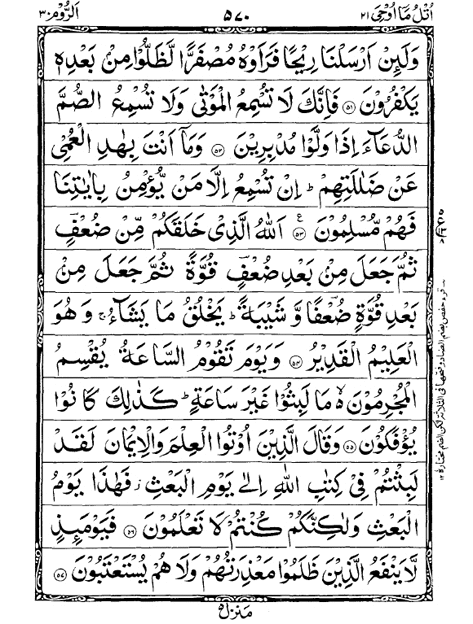 اُتْلُ مَآ اُوْحِىَ ٢١ ٥٧٠ اَلرُّوْم ٣٠
وَلَىِٕنْ اَرْسَلْنَا رِيْحًا فَرَاَوْهُ مُصْفَرًّا لَّظَلُّوْا مِنْۢ بَعْدِهٖ
يَكْفُرُوْنَ ۝٥١ فَاِنَّكَ لَا تُسْمِعُ الْمَوْتٰى وَلَا تُسْمِعُ الصُّمَّ
الدُّعَآءَ اِذَا وَلَّوْا مُدْبِرِيْنَ ۝٥٢ وَمَآ اَنْتَ بِهٰدِ الْعُمْىِ
عَنْ ضَلٰلَتِهِمْ ؕ اِنْ تُسْمِعُ اِلَّا مَنْ يُّؤْمِنُ بِاٰيٰتِنَا
فَهُمْ مُّسْلِمُوْنَ ۝٥٣ اَللّٰهُ الَّذِىْ خَلَقَكُمْ مِّنْ ضُعْفٍ
ثُمَّ جَعَلَ مِنْۢ بَعْدِ ضُعْفٍ قُوَّةً ثُمَّ جَعَلَ مِنْۢ
بَعْدِ قُوَّةٍ ضُعْفًا وَّشَيْبَةً ؕ يَخْلُقُ مَا يَشَآءُ ۚ وَهُوَ
الْعَلِيْمُ الْقَدِيْرُ ۝٥٤ وَيَوْمَ تَقُوْمُ السَّاعَةُ يُقْسِمُ
الْمُجْرِمُوْنَ ۙ مَا لَبِثُوْا غَيْرَ سَاعَةٍ ؕ كَذٰلِكَ كَانُوْا
يُؤْفَكُوْنَ ۝٥٥ وَقَالَ الَّذِيْنَ اُوْتُوا الْعِلْمَ وَالْاِيْمَانَ لَقَدْ
لَبِثْتُمْ فِىْ كِتٰبِ اللّٰهِ اِلٰى يَوْمِ الْبَعْثِ ؗ فَهٰذَا يَوْمُ
الْبَعْثِ وَلٰكِنَّكُمْ كُنْتُمْ لَا تَعْلَمُوْنَ ۝٥٦ فَيَوْمَىِٕذٍ
لَّا يَنْفَعُ الَّذِيْنَ ظَلَمُوْا مَعْذِرَتُهُمْ وَلَا هُمْ يُسْتَعْتَبُوْنَ ۝٥٧
منزل ٥